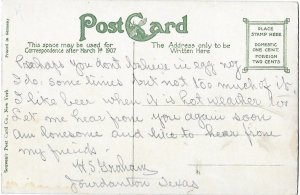 Post Card
This space may be used for
Correspondence after March 1st 1907
The Address only to be
Written Here
PLACE
STAMP HERE
DOMESTIC
ONE CENT
FOREIGN
TWO CENTS
Printed in Germany
Souvenir Post Card Co., New York.
Perhaps you don't believe in egg nog
I do. some times but not too much of it
I like beer when it is hot weather too
Let me hear from you again soon
Am lonesome and like to hear from
my friends.
H S Graham
Jourdanton Texas